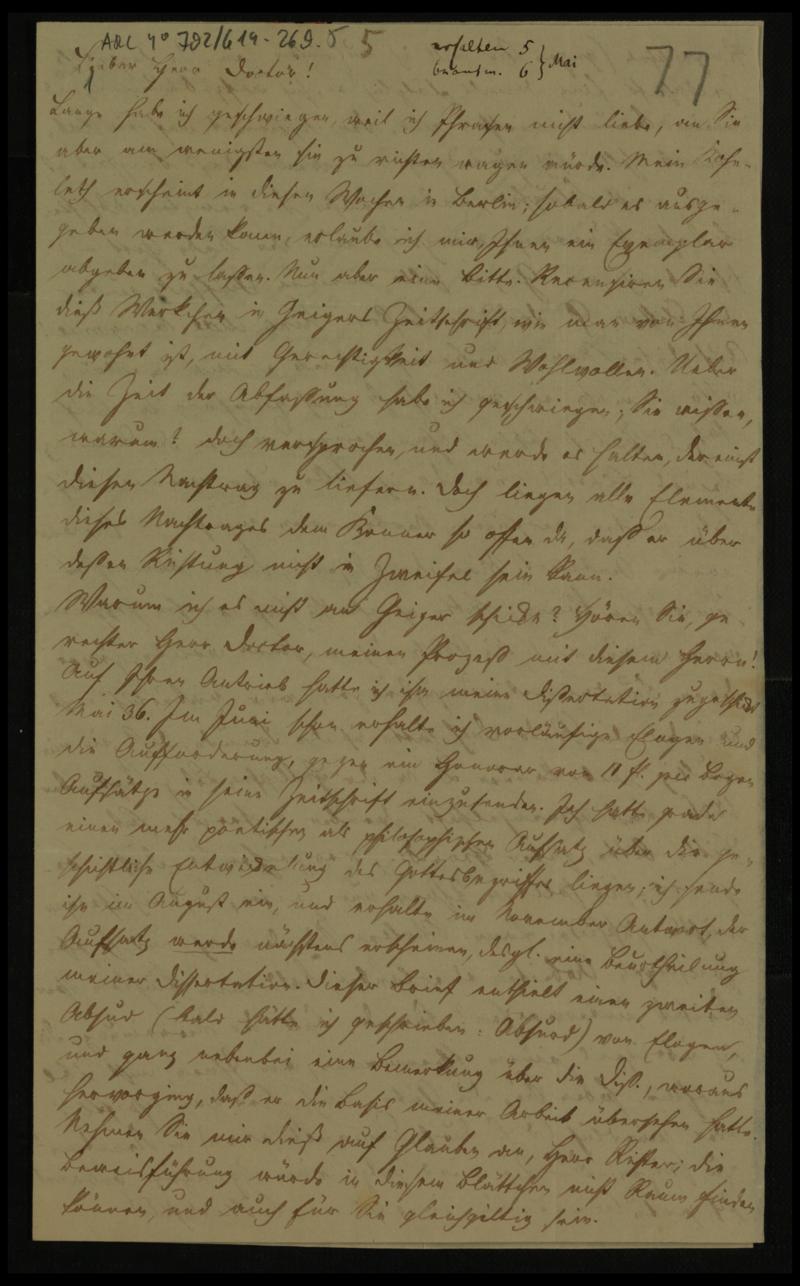 ARC 4° 792/G 14 - 269. 5 5
erhalten 5 } Mai
beantw. 6
77
Lieber Herr Doctor!
Lange habe ich geschwiegen, weil ich Phrasen nicht liebe, an Sie
aber am wenigsten sie zu richten wagen würde. Mein Kohe-
leth erscheint in diesen Wochen in Berlin; sobald es ausge-
geben werden kann, erlaube ich mir, Ihnen ein Exemplar
abgeben zu lassen. Nun aber eine Bitte. Recensiren Sie
dieß Werkchen in Geigers Zeitschrift, wie man von Ihnen
gewohnt ist, mit Gerechtigkeit und Wohlwollen. Ueber
die Zeit der Abfassung habe ich geschwiegen; Sie wissen,
warum? doch versprochen, und werde es halten, dereinst
diesen Nachtrag zu liefern. Doch liegen alle Elemente
dieses Nachtrages dem Kenner so offen da, daß er über
dessen Richtung nicht in Zweifel sein kann.
Warum ich es nicht an Geiger schicke? Hören Sie, ge-
rechter Herr Doctor, meinen Prozeß mit diesem Herrn!
Auf Ihren Antrieb hatte ich ihm meine Dissertation zugeschickt
Mai 36. Im Juni schon erhalte ich vorläufige Elogen und
die Aufforderung, gegen ein Honorar von 11 f. per Bogen
Aufsätze in seine Zeitschrift einzusenden. Ich hatte grade
einen mehr poetischen als philosophischen Aufsatz über die ge-
schichtliche Entwickelung des Gottesbegriffes liegen; ich sende
ihn im August ein, und erhalte im November Antwort, der
Aufsatz werde nächstens erscheinen, desgl. eine Beurtheilung
meiner Dissertation. Dieser Brief enthielt einen zweiten
Absud (bald hätte ich geschrieben: Absurd) von Elogen,
und ganz nebenbei eine Bemerkung über die Diss., woraus
hervorging, daß er die Basis meiner Arbeit übersehen hatte.
Nehmen Sie mir dieß auf Glauben an, Herr Richter; die
Beweisführung würde in diesem Blättchen nicht Raum finden
können, und auch für Sie gleichgiltig sein.